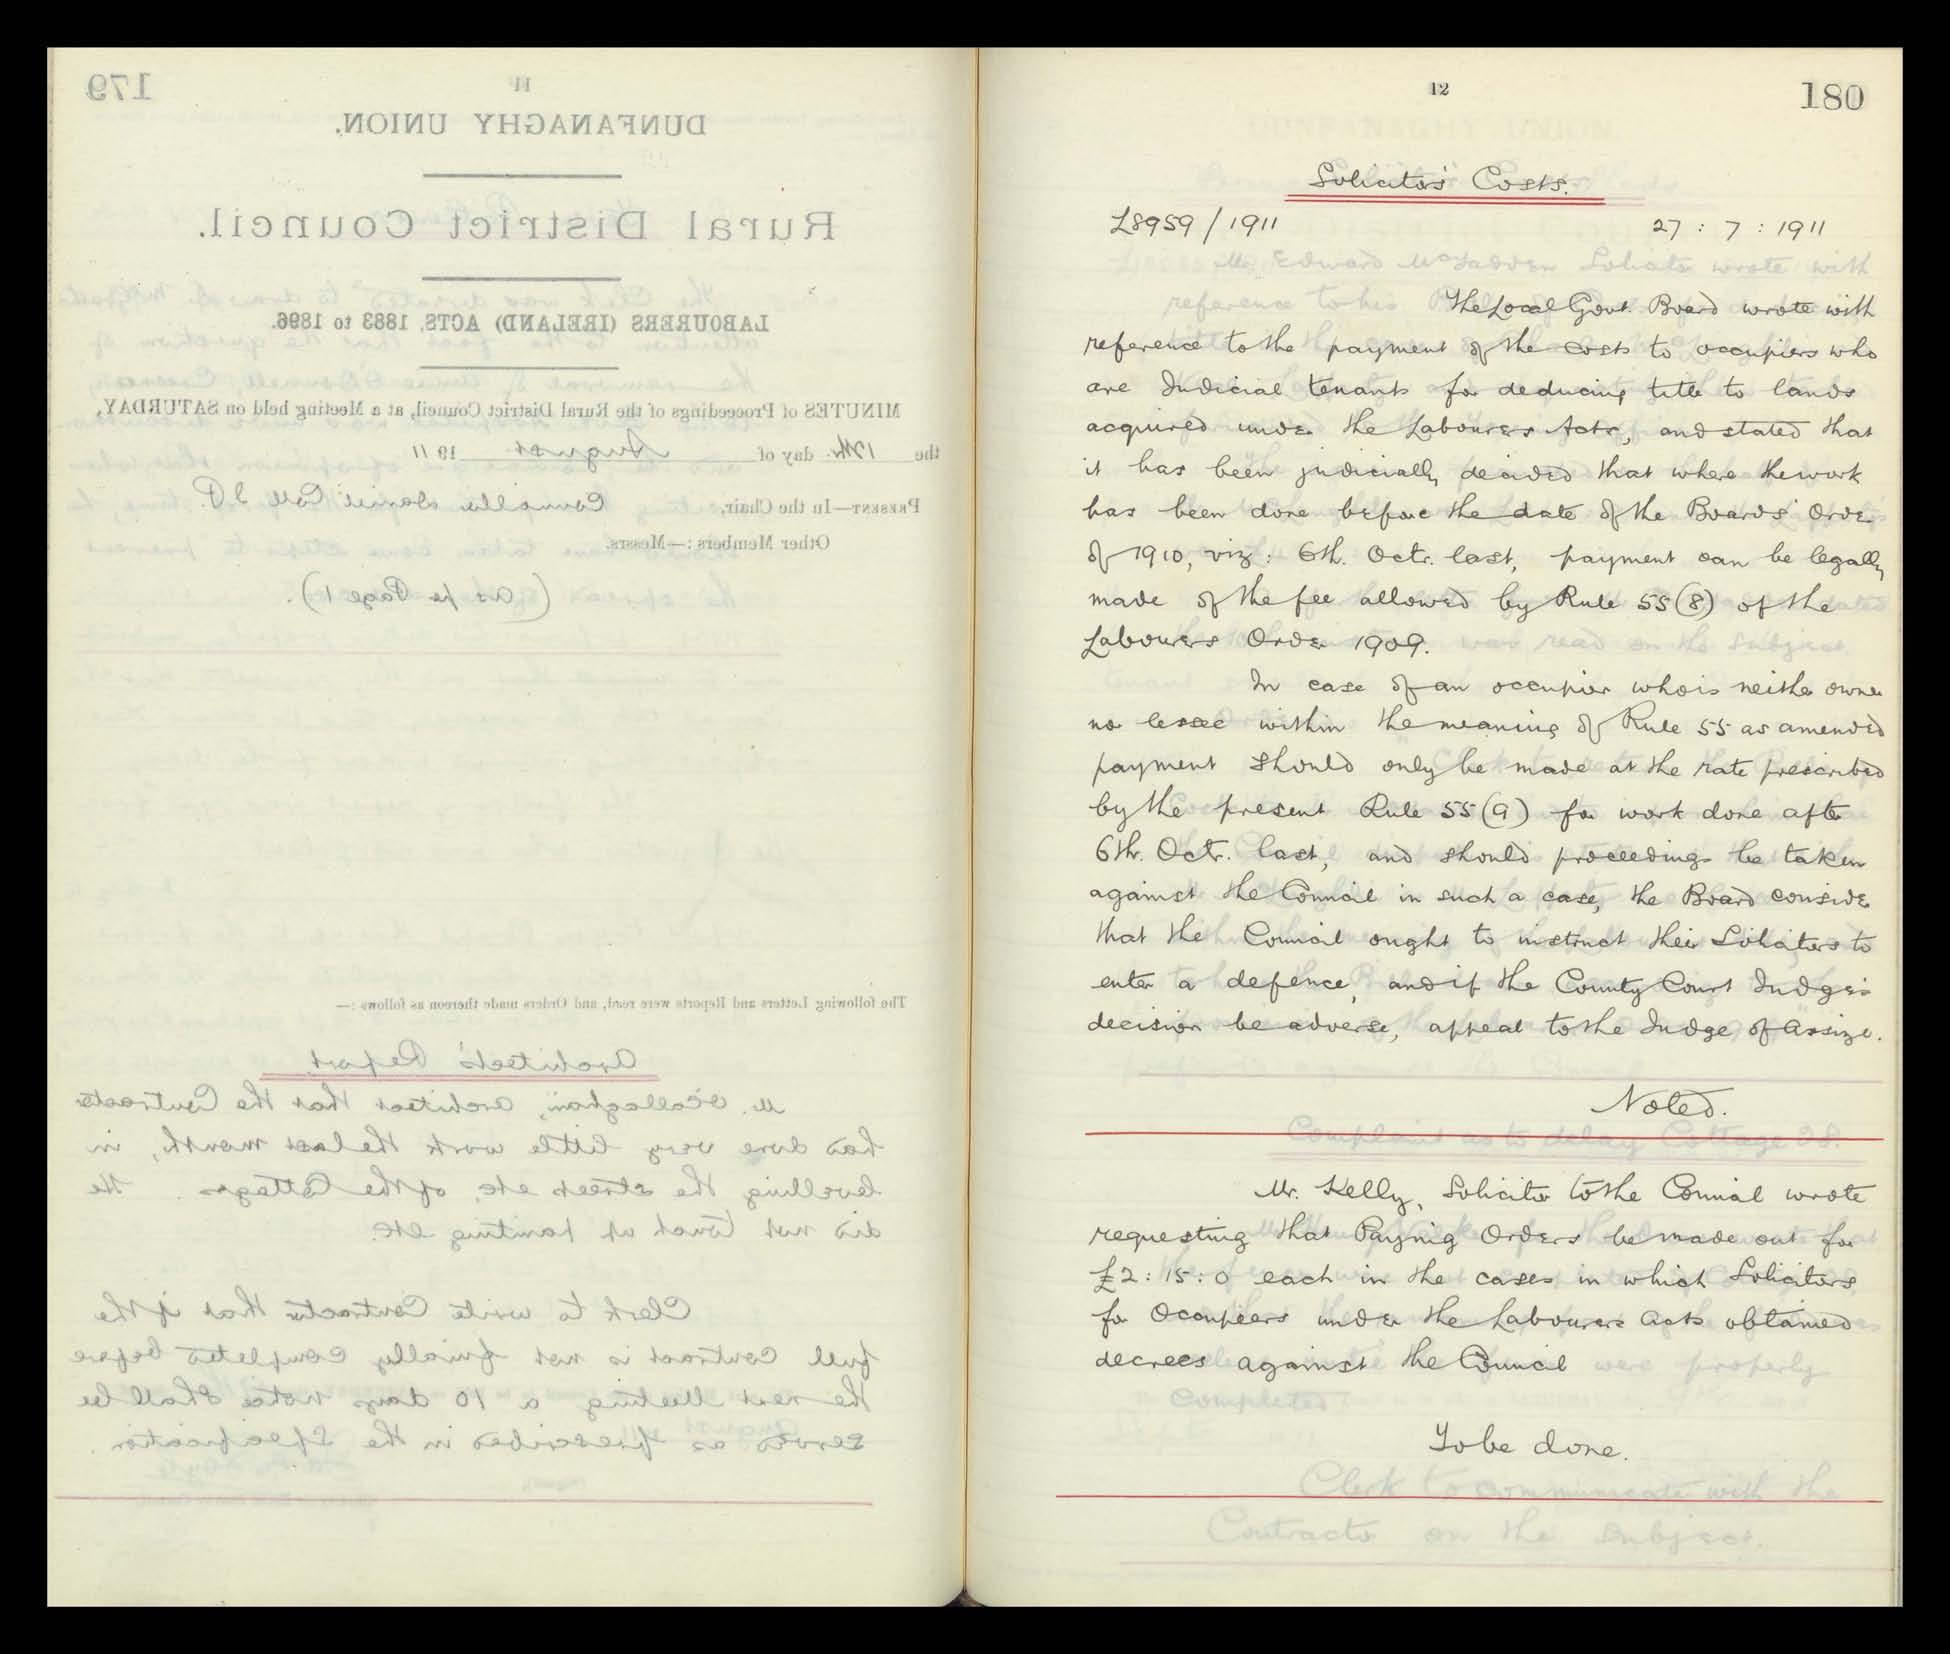 179
11
DUNFANAGHY UNION.
Rural District Council.
LABOURERS (IRELAND) ACTS, 1883 to 1896.
MINUTES of Proceedings of the Rural District Council, at a Meeting held on SATURDAY,
the 12th day of August 1911
PRESENT—In the Chair, Councillor Daniel Coll J.P.
Other Members:—Messrs.
(As per Page 1).
The following Letters and Reports were read, and Orders made thereon as follows:—
Architect's Report
Mr. O'Callaghan, Architect that the Contractor
has done very little work the last month, in
levelling the streets etc, of the Cottages. He
did not touch up painting etc.
Clerk to write Contractor that if the
full contract is not finally completed before
the next Meeting a 10 days notice shall be
served as prescribed in the Specification.
12
180
Solicitors' Costs.
L8959/1911 27 : 7 : 1911
The Local Govt. Board wrote with
reference to the payment of the costs to occupiers who
are Judicial tenants for deducing title to lands
acquired under the Labourers Acts, and stated that
it has been judicially decided that where the work
has been done before the date of the Boards' Order
of 1910, viz: 6th. Octr. last, payment can be legally
made of the fee allowed by Rule 55(8) of the
Labourers Order 1909.
In case of an occupier who is neither owner
nor lessee within the meaning of Rule 55 as amended
payment should only be made at the rate prescribed
by the present Rule 55(9) for work done after
6th. Octr. last, and should proceedings be taken
against the Council in such a case, the Board consider
that the Council ought to instruct their Solicitors to
enter a defence, and if the County Court Judge's
decision be adverse, appeal to the Judge of Assize.
Noted.
Mr. Kelly, Solicitor to the Council wrote
requesting that Paying Orders be made out for
£2:15:0 each in the cases in which Solicitors
for Occupiers under the Labourers Acts obtained
decrees against the Council
To be done.